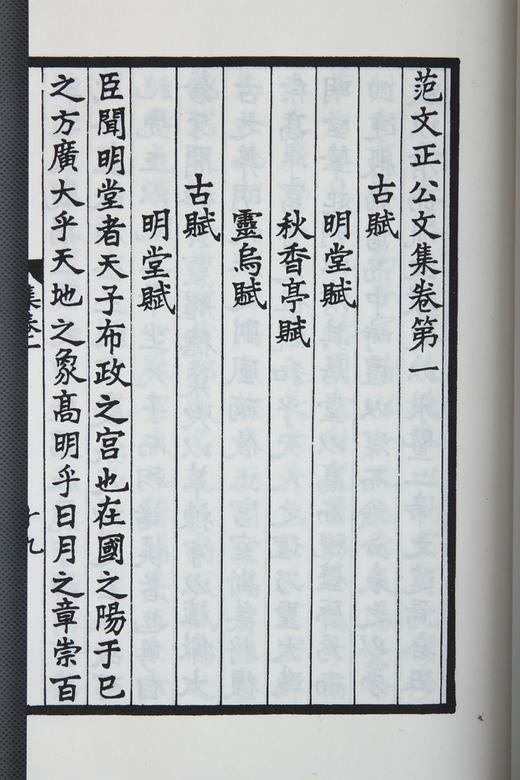 范文正公文集卷第一
古賦
明堂賦
秋香亭賦
靈烏賦
古賦
明堂賦
臣聞明堂者天子布政之宮也在國之陽于巳
之方廣大乎天地之象高明乎日月之章崇百